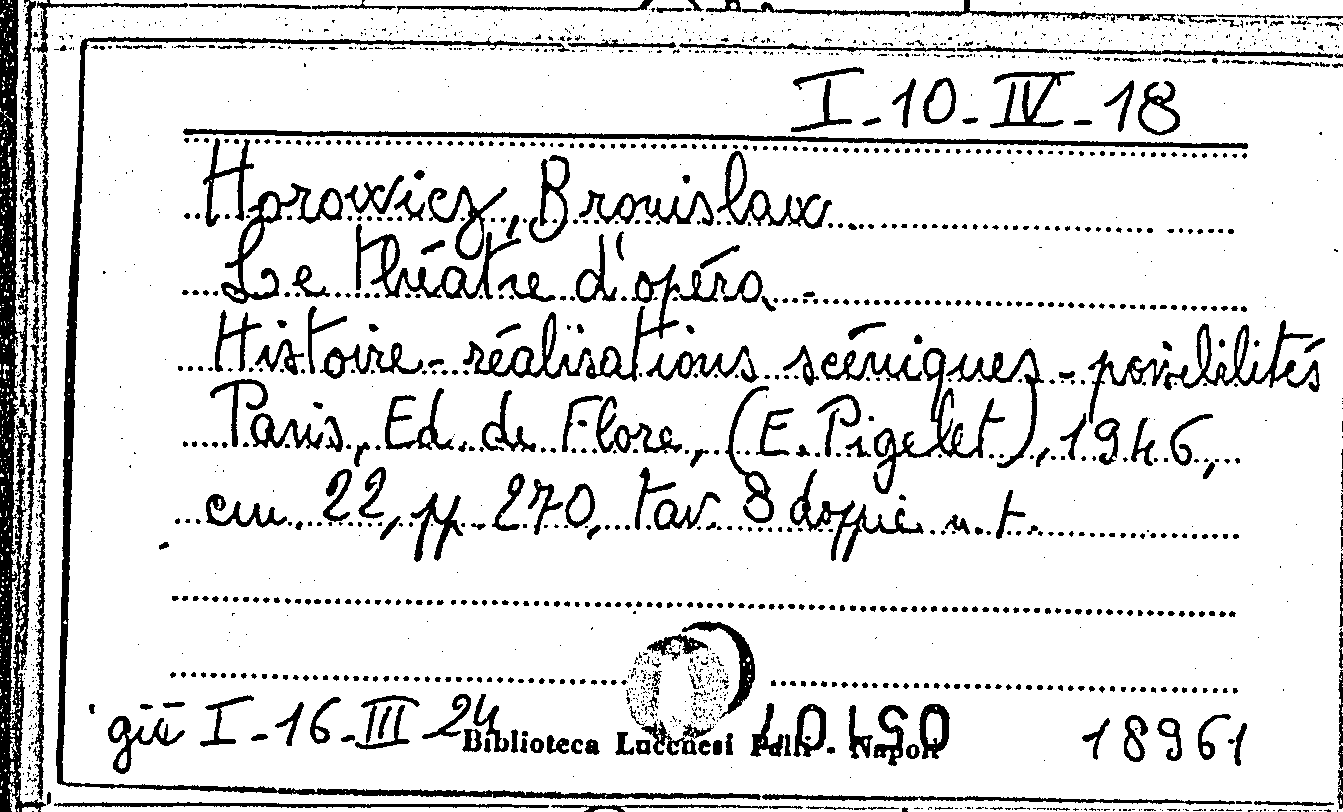 I-10-IV-18
Horowicz, Bronislaw
Le théâtre d'opéra -
Histoire - réalisations scéniques - possibilités
Paris, Ed. de Flore, (E. Pigelet), 1946,
cm. 22, pp. 270, tav. 8 doppie n. t.
già I-16-III 24
Biblioteca Lucchesi Palli - Napoli
18961